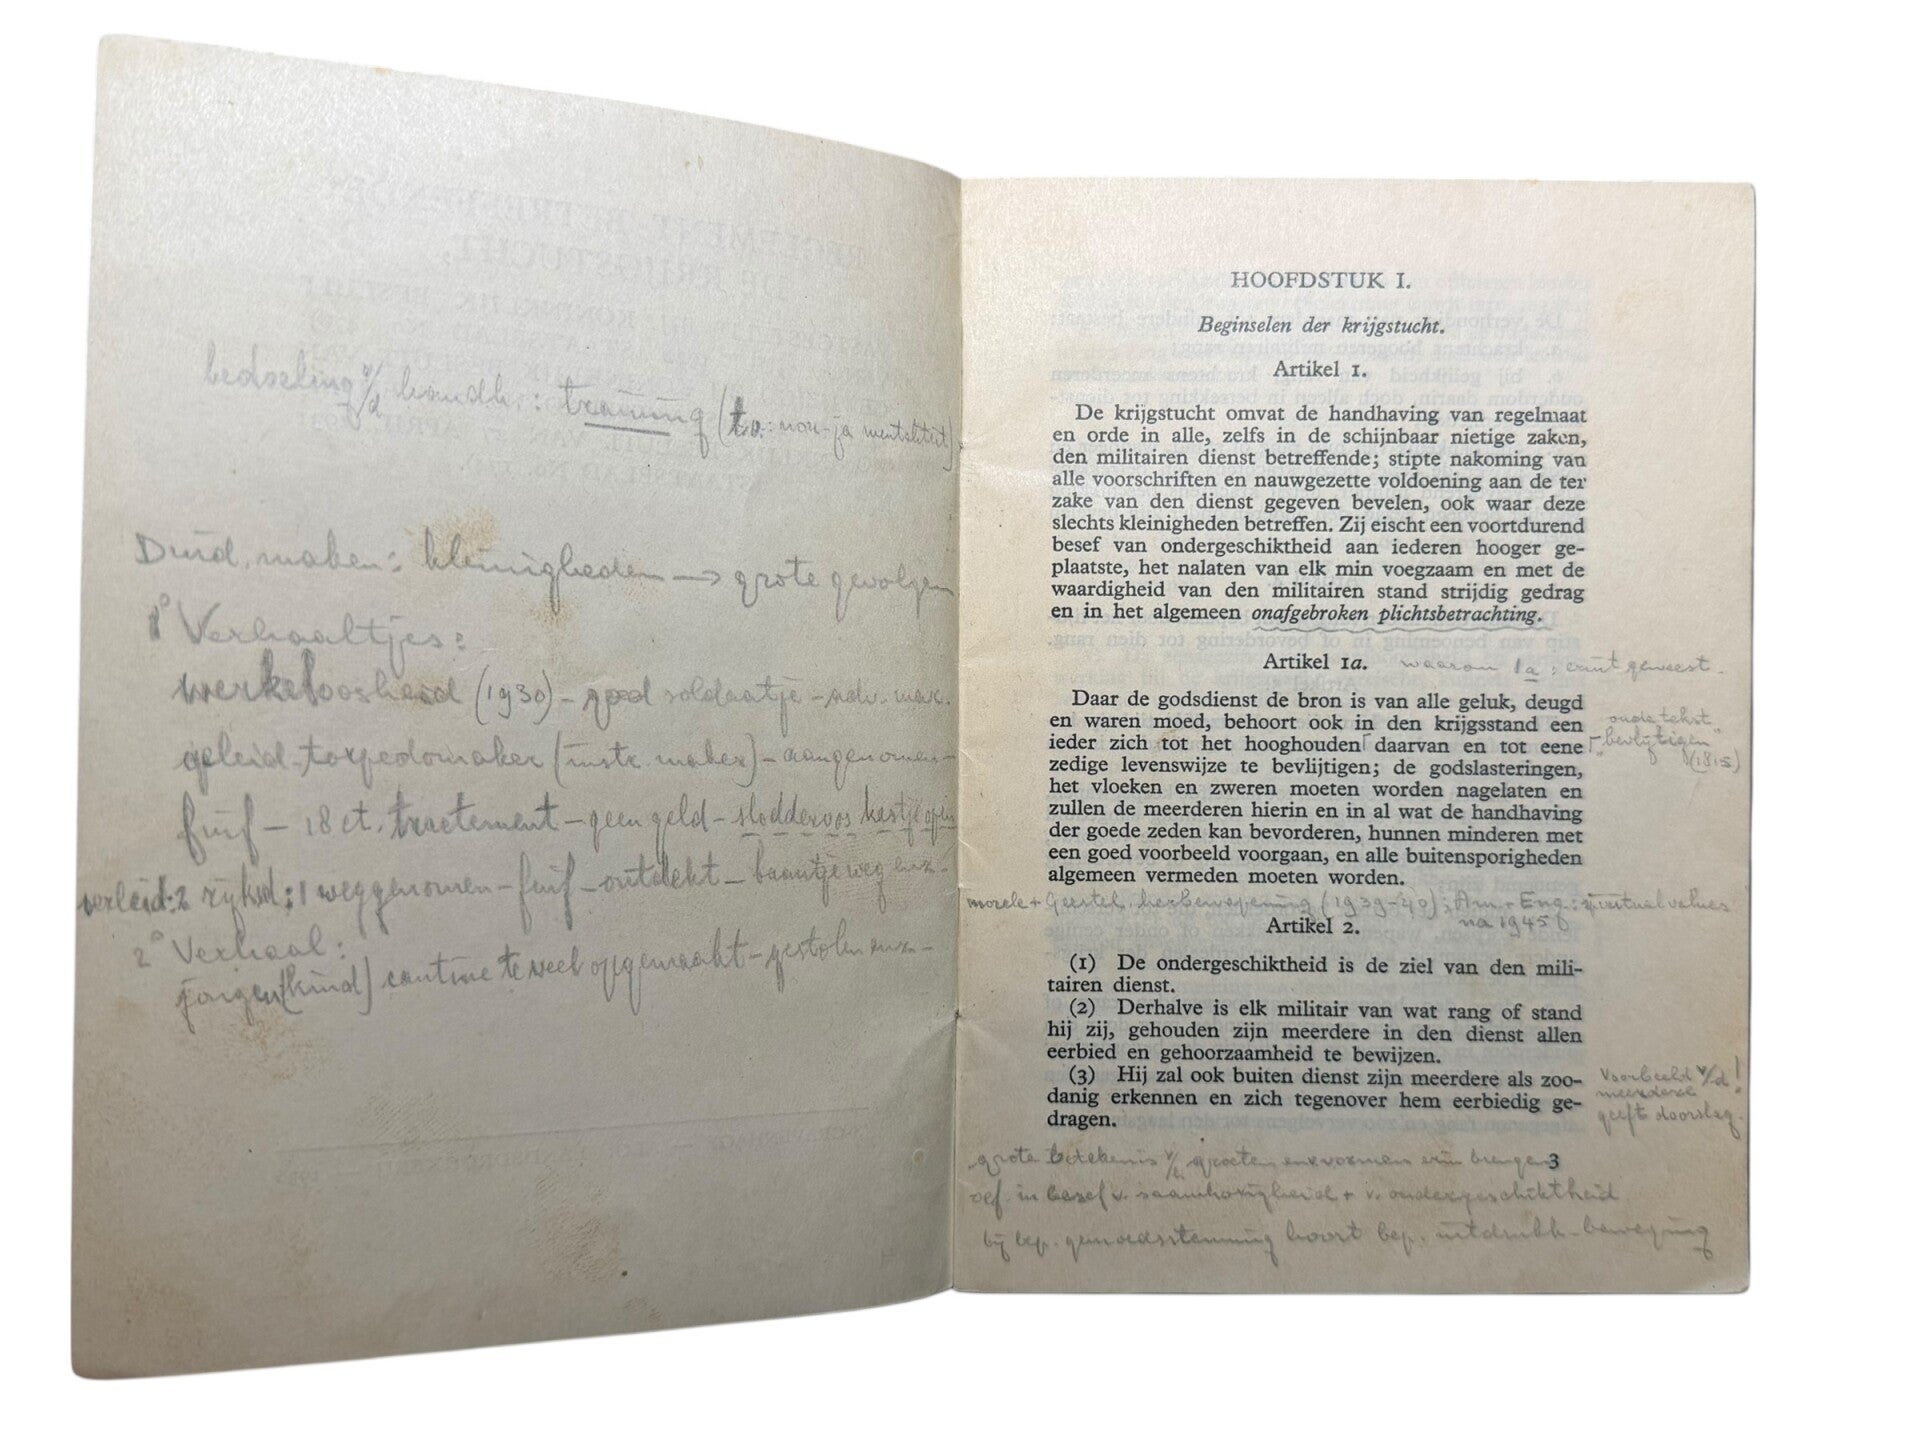 bedoeling v/d handh.: training (t.o.: nou-ja mentaliteit)
Duid. maken: kleinigheden → grote gevolgen
1° Verhaaltjes:
werkeloosheid (1930) – goed soldaatje – adv. mar.
geleid. torpedomaker (instr. maker) – aangenomen –
fuif – 18 ct. tractement – geen geld – sloddervos kastje open
verleid: 2 rijksd: 1 weggenomen – fuif – ontdekt – baantje weg enz.
2° Verhaal:
jongen (kind) cantine te veel opgemaakt – gestolen enz –
HOOFDSTUK I.
Beginselen der krijgstucht.
Artikel 1.
De krijgstucht omvat de handhaving van regelmaat
en orde in alle, zelfs in de schijnbaar nietige zaken,
den militairen dienst betreffende; stipte nakoming van
alle voorschriften en nauwgezette voldoening aan de ter
zake van den dienst gegeven bevelen, ook waar deze
slechts kleinigheden betreffen. Zij eischt een voortdurend
besef van ondergeschiktheid aan iederen hooger ge-
plaatste, het nalaten van elk min voegzaam en met de
waardigheid van den militairen stand strijdig gedrag
en in het algemeen onafgebroken plichtsbetrachting.
Artikel 1a. waarom 1a: eruit geweest.
Daar de godsdienst de bron is van alle geluk, deugd
en waren moed, behoort ook in den krijgsstand een
ieder zich tot het hooghouden daarvan en tot eene
zedige levenswijze te bevlijtigen; de godslasteringen,
het vloeken en zweren moeten worden nagelaten en
zullen de meerderen hierin en in al wat de handhaving
der goede zeden kan bevorderen, hunnen minderen met
een goed voorbeeld voorgaan, en alle buitensporigheden
algemeen vermeden moeten worden.
oude tekst
"bevlijtigen"
(1815)
morele + Geestel. herbewapening (1939-40); Am. + Eng: spiritual values
na 1945
Artikel 2.
(1) De ondergeschiktheid is de ziel van den mili-
tairen dienst.
(2) Derhalve is elk militair van wat rang of stand
hij zij, gehouden zijn meerdere in den dienst allen
eerbied en gehoorzaamheid te bewijzen.
(3) Hij zal ook buiten dienst zijn meerdere als zoo-
danig erkennen en zich tegenover hem eerbiedig ge-
dragen.
voorbeeld v/d!
meerdere
geeft doorslag.
grote betekenis v/h groeten en vormen erin brengen
3
oef. in besef v. saamhorigheid + v. ondergeschiktheid
bij bep. gemoedsstemming hoort bep. uitdrukk-beweging